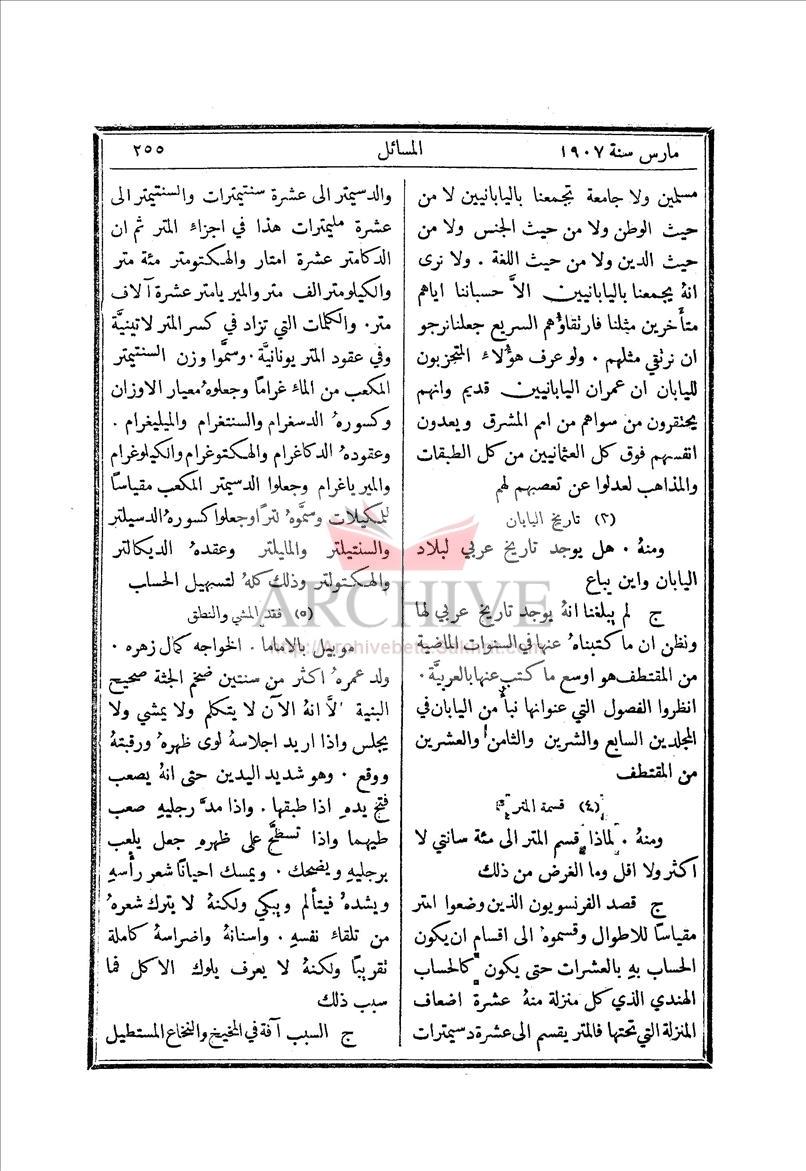 مارس سنة ١٩٠٧
المسائل
٢٥٥
مسلمين ولا جامعة تجمعنا باليابانيين لا من
حيث الوطن ولا من حيث الجنس ولا من
حيث الدين ولا من حيث اللغة . ولا نرى
انهُ يجمعنا باليابانيين الاَّ حسباننا اياهم
متأَخرين مثلنا فارتقاؤُهم السريع جعلنا نرجو
ان نرتقي مثلهم . ولو عرف هؤُلاء المتحزبون
لليابان ان عمران اليابانيين قديم وانهم
يحتقرون من سواهم من امم المشرق ويعدون
انفسهم فوق كل العثمانيين من كل الطبقات
والمذاهب لعدلوا عن تعصبهم لهم
(٣) تاريخ اليابان
ومنهُ . هل يوجد تاريخ عربي لبلاد
اليابان واين يباع
ج لم يبلغنا انهُ يوجد تاريخ عربي لها
ونظن ان ما كتبناهُ عنها في السنوات الماضية
من المقتطف هو اوسع ما كتب عنها بالعربيَّة .
انظروا الفصول التي عنوانها نبأٌ من اليابان في
المجلدين السابع والشرين والثامن والعشرين
من المقتطف
(٤) قسمة المتر
ومنهُ . لماذا قسم المتر الى مئة سانتي لا
اكثر ولا اقل وما الغرض من ذلك
ج قصد الفرنسويون الذين وضعوا المتر
مقياسًا للاطوال وقسموهُ الى اقسام ان يكون
الحساب بهِ بالعشرات حتى يكون كالحساب
الهندي الذي كل منزلة منهُ عشرة اضعاف
المنزلة التي تحتها فالمتر يقسم الى عشرة دسيمترات
والدسيمتر الى عشرة سنتيمترات والسنتيمتر الى
عشرة مليمترات هذا في اجزاء المتر ثم ان
الدكامتر عشرة امتار والهكتومتر مئة متر
والكيلومتر الف متر والميريامتر عشرة آلاف
متر. والكلمات التي تزاد في كسر المتر لاتينيَّة
وفي عقود المتر يونانيَّة . وسمَّوا وزن السنتيمتر
المكعب من الماء غرامًا وجعلوهُ معيار الاوزان
وكسورهُ الدسغرام والسنتغرام والميليغرام .
وعقودهُ الدكاغرام والهكتوغرام والكيلوغرام
والميرياغرام وجعلوا الدسيمتر المكعب مقياسًا
للمكيلات وسمَّوهُ لترًا وجعلوا كسورهُ الدسيلتر
والسنتيلتر والمايلتر وعقدهُ الديكالتر
والهكتولتر وذلك كلهُ لتسهيل الحساب
(٥) فقد المشي والنطق
موبيل بالاماما . الخواجه كمال زهره .
ولد عمرهُ اكثر من سنتين ضخم الجثة صحيح
البنية الاَّ انهُ الآن لا يتكلم ولا يمشي ولا
يجلس واذا اريد اجلاسهُ لوى ظهرهُ ورقبتهُ
ووقع . وهو شديد اليدين حتى انهُ يصعب
فتح يدهِ اذا طبقها . واذا مدَّ رجليهِ صعب
طيهما واذا تسطَّح على ظهرهِ جعل يلعب
برجليهِ ويضحك . ويمسك احيانًا شعر رأسهِ
ويشدهُ فيتألم ويبكي ولكنهُ لا يترك شعرهُ
من تلقاء نفسهِ . واسنانهُ واضراسهُ كاملة
تقريبًا ولكنهُ لا يعرف يلوك الاكل فما
سبب ذلك
ج السبب آفة في المخيخ والنخاع المستطيل
ARCHIVE